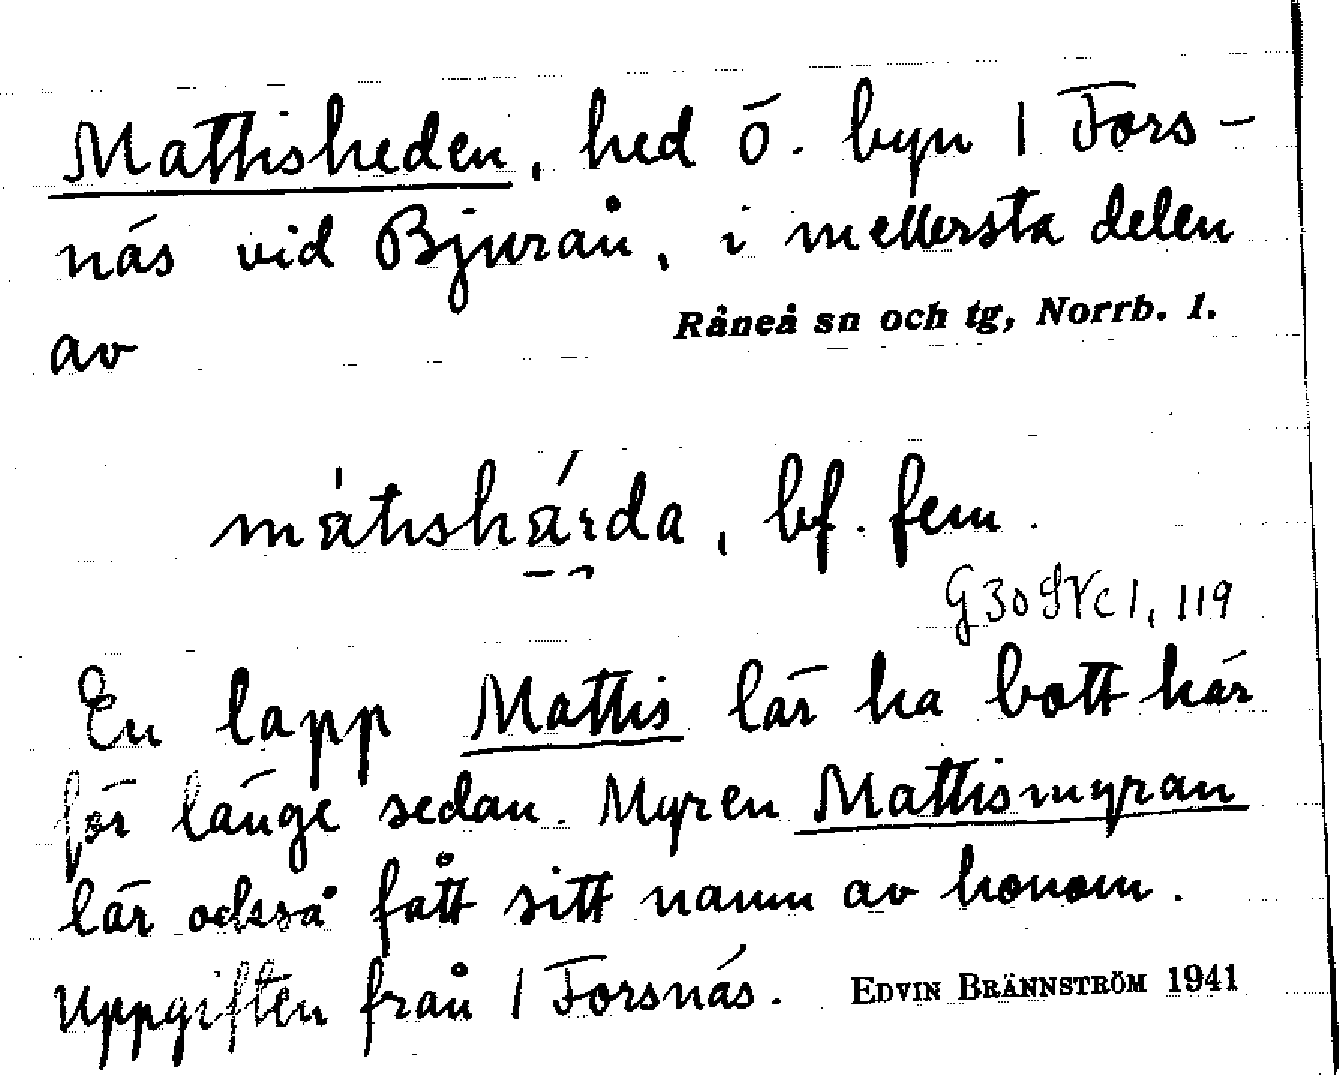 Mattisheden, hed ö. byn 1 Fors-
näs vid Bjurån, i mellersta delen
av Råneå sn och tg, Norrb. l.
mátishárda, bf. fem.
G30 SVC 1, 119
En lapp Mattis lär ha bott här
för länge sedan. Myren Mattismyran
lär också fått sitt namn av honom.
Uppgiften från 1 Forsnäs. EDVIN BRÄNNSTRÖM 1941